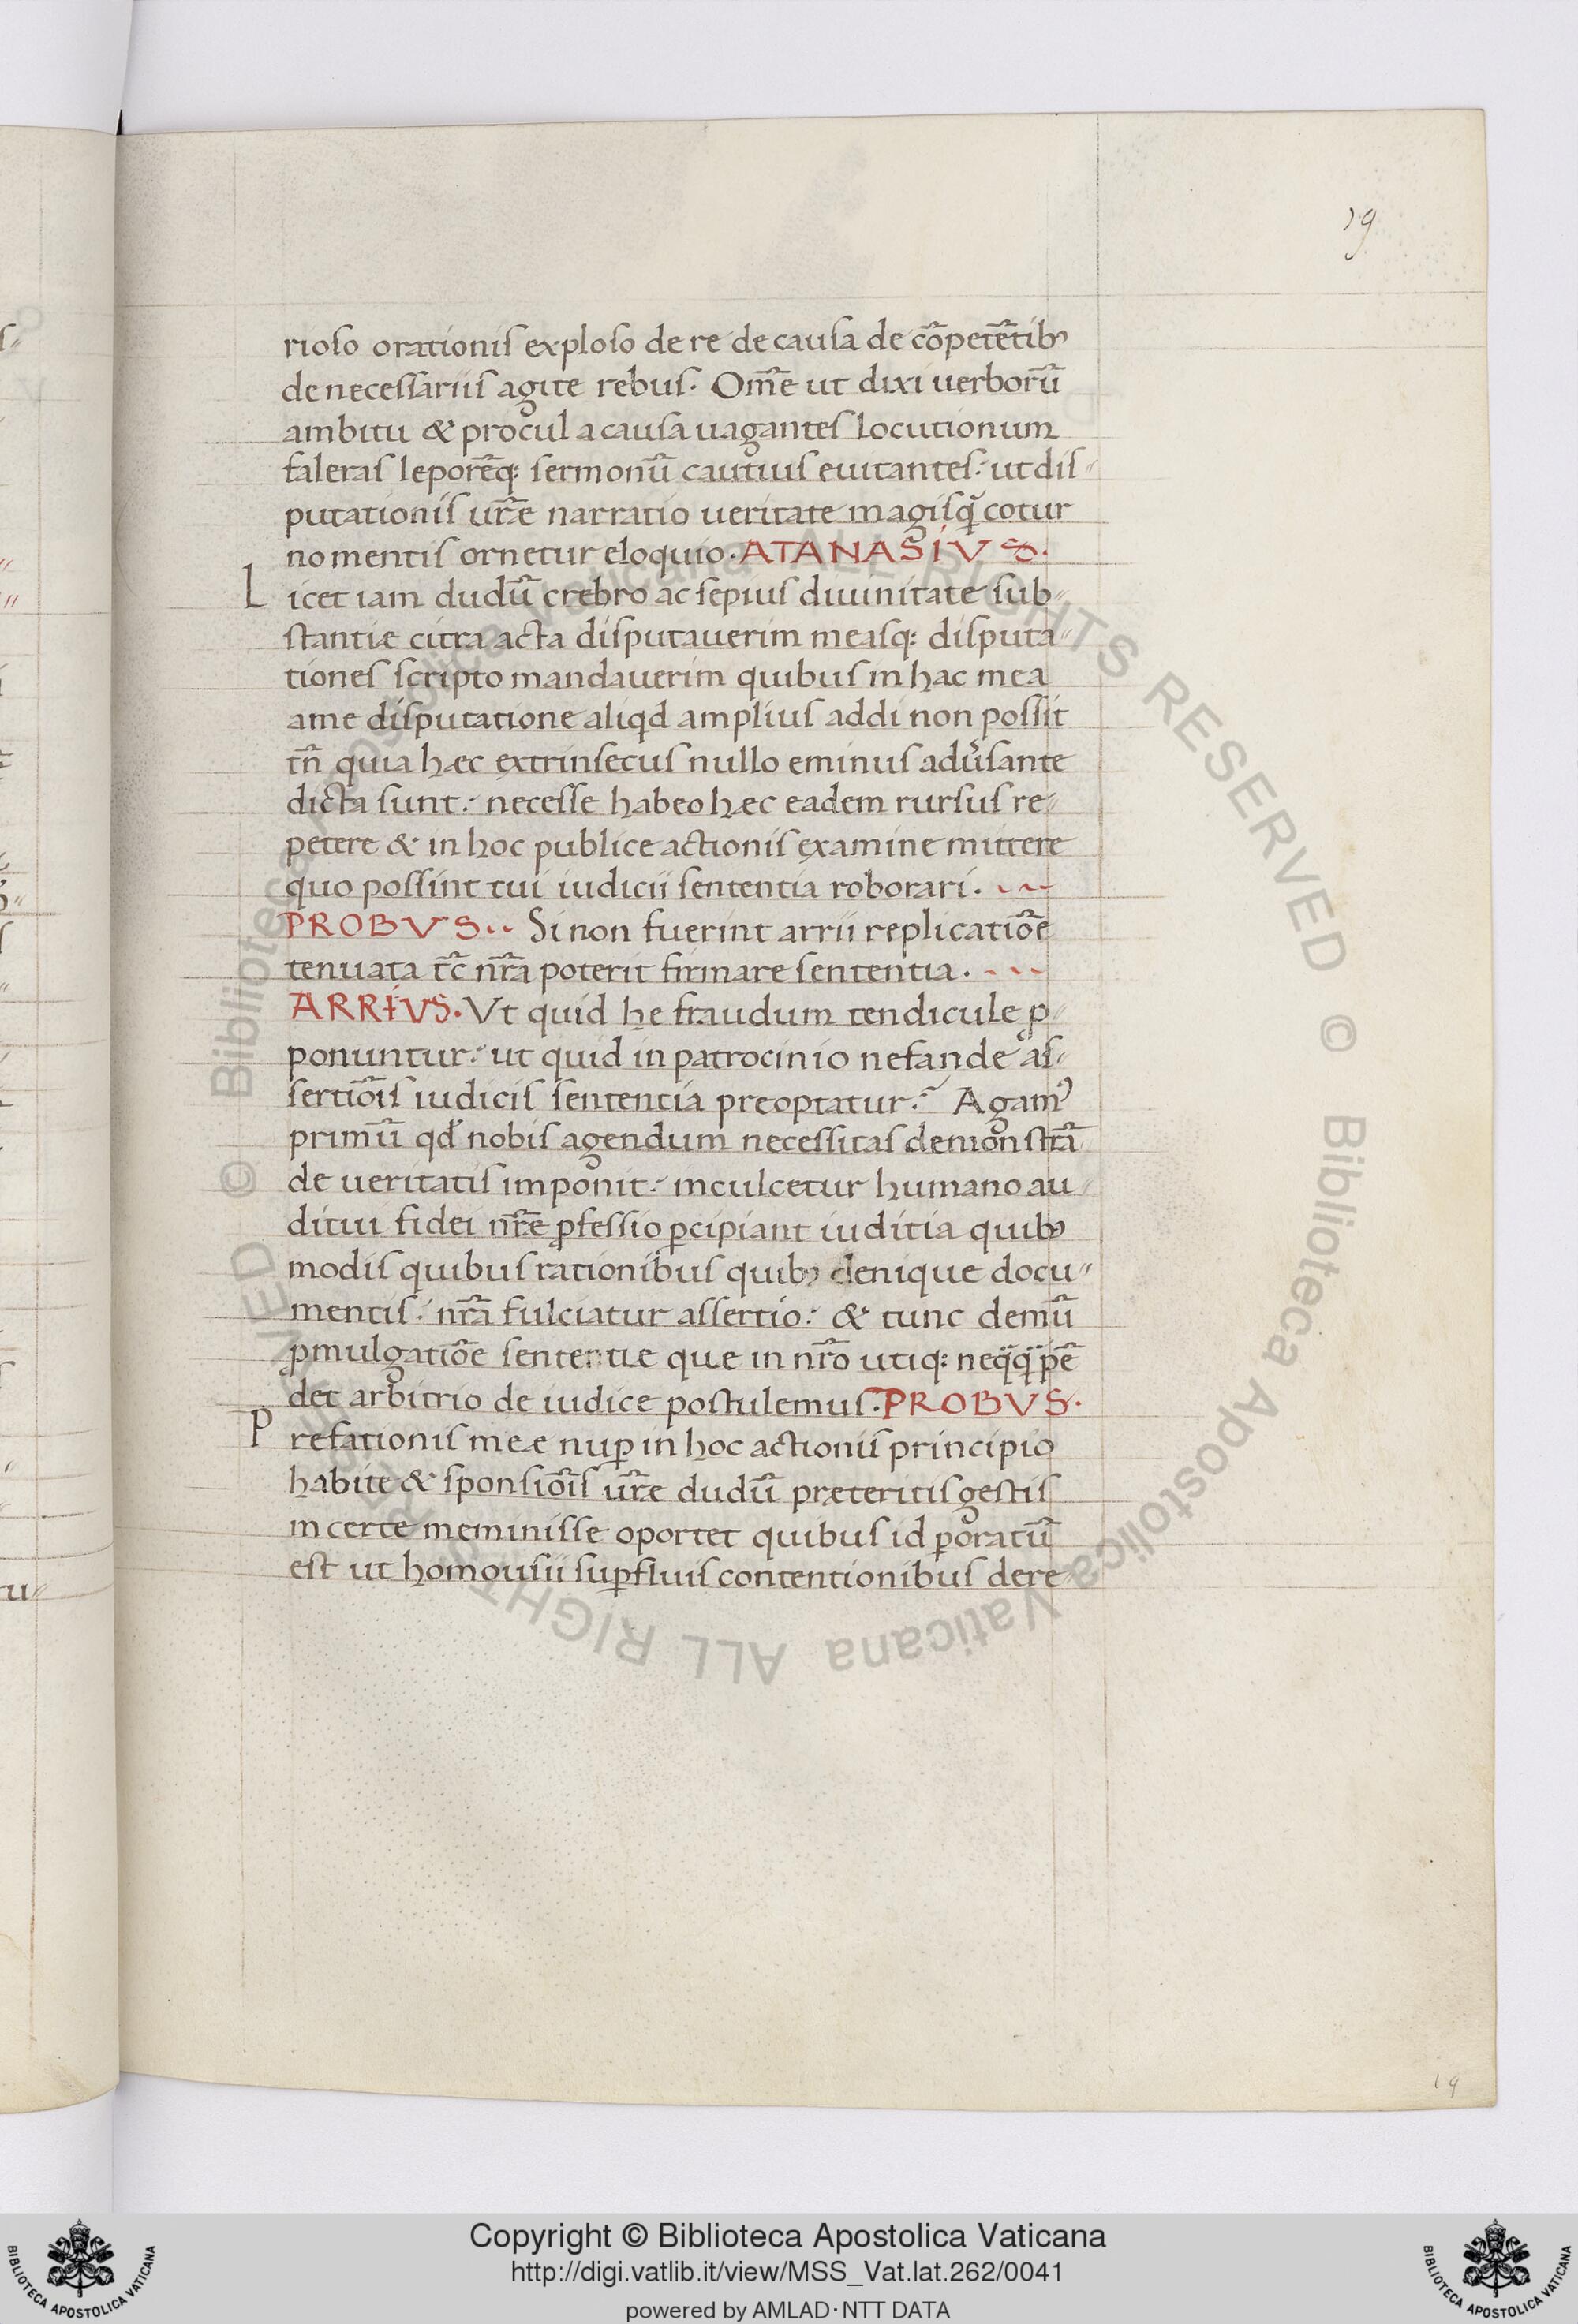 19
rioso orationis exploso de re de causa de cõpetẽtibꝰ
de necessariis agite rebus. Om̃e ut dixi uerborũ
ambitu & procul a causa uagantes locutionum
faleras leporẽq; sermonũ cautius euitantes: ut dis-
putationis ur̃e narratio ueritate magisq̃ cotur
no mentis ornetur eloquio. ATANASIVS.
Licet iam dudũ crebro ac sepius diuinitate sub-
stantiæ citra acta disputauerim measq; disputa-
tiones scripto mandauerim quibus in hac mea
a me disputatione aliqd amplius addi non possit
tñ quia hæc extrinsecus nullo eminus adũsante
dicta sunt: necesse habeo hæc eadem rursus re-
petere & in hoc publice actionis examine mittere
quo possint tui iudicii sententia roborari. ~~
PROBVS.. Si non fuerint arrii replicatiõe
tenuata tc̃ nr̃a poterit firmare sententia. ---
ARRIVS. Vt quid he fraudum tendicule ꝓ-
ponuntur: ut quid in patrocinio nefande as-
sertiõis iudicis sententia preoptatur:~ Agamꝰ
primũ qđ nobis agendum necessitas demonstrã
de ueritatis imponit: inculcetur humano au-
ditui fidei nr̃e ꝓfessio ꝑcipiant iuditia quibꝰ
modis quibus rationibus quibꝰ denique docu-
mentis: nr̃a fulciatur assertio: & tunc demũ
ꝓmulgatiõe sententiæ que in nr̃o utiq; neq̃q̃ pẽ
det arbitrio de iudice postulemus. PROBVS.
Prefationis meæ nuꝑ in hoc actionis principio
habite & sponsiõis ur̃e dudũ præteritis gestis
in certe meminisse oportet quibus id ꝑoratũ
est ut homousii suꝑfluis contentionibus dere-
19
© Biblioteca Apostolica Vaticana ALL RIGHTS RESERVED © Biblioteca Apostolica Vaticana ALL RIGHTS RESERVED
BIBLIOTECA APOSTOLICA VATICANA
Copyright © Biblioteca Apostolica Vaticana
http://digi.vatlib.it/view/MSS_Vat.lat.262/0041
powered by AMLAD·NTT DATA
BIBLIOTECA APOSTOLICA VATICANA